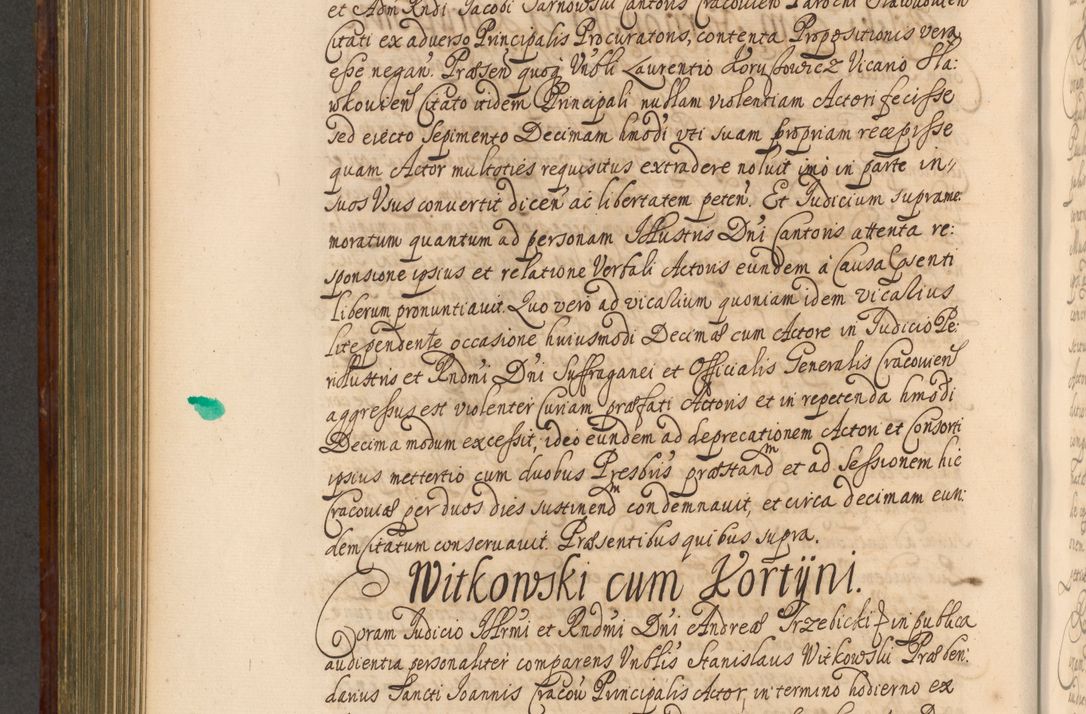 et Adm Rndi Jacobi Tarnowski Cantoris Cracovien Parochi Slawkovien
Citati ex adverso Principalis Procuratoris, contenta Propositionis vera
esse negan. Præsen quoq Vnbli Laurentio Vicario Sla:
wkovien Citato itidem Principali nullam violentiam Actori fecisse
sed eiecto sepimento Decimam hmodi vti suam propriam recepisse
quam Actor multoties requisitus extradere noluit imo in parte in
suos Vsus convertit dicen ac libertatem peten. Et Judicium suprame:
moratum quantum ad personam Illustris Dni Cantoris attenta re:
sponsione ipsius et relatione Verbali Actoris eundem à Causa Psenti
liberum pronuntiavit. Quo vero ad vicarium quoniam idem vicarius
lite pendente occasione huiusmodi Decimæ cum Actore in Judicio Pe:
rillustris et Rndmi Dni Suffraganei et Officialis Generalis Cracovien
aggressus est violenter Curiam præfati Actoris et in repetenda hmodi
Decima modum excessit, ideo eundem ad deprecationem Actori et Consorti
ipsius mettertio cum duobus Presbris præstand et ad Sessionem hic
Cracoviæ per duos dies sustinend condemnavit, et circa decimam eun:
dem Citatum conservavit. Præsentibus quibus supra.
Witkowski cum Kortÿni.
Coram Judicio Illrmi et Rndmi Dni Andreæ Trzebicki in publica
audientia personaliter comparens Vnblis Stanislaus Witkowski Præben:
darius Sancti Joannis Cracov Principalis Actor, in termino hodierno ex